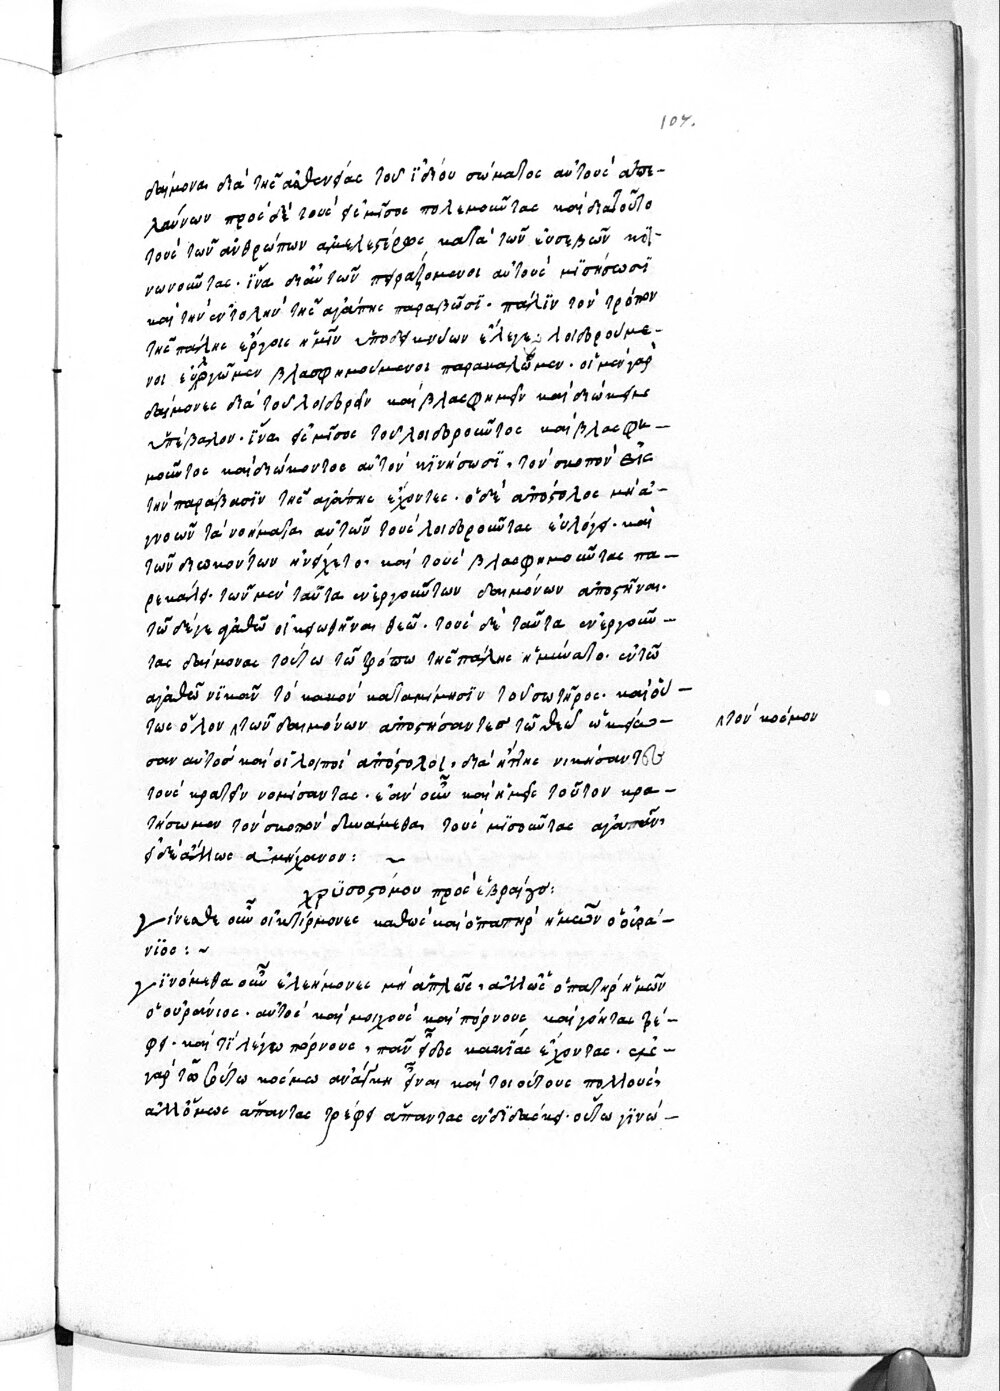 107.
δαίμονα διὰ τῆς ἀσθενείας τοῦ ἰδίου σώματος αὐτοὺς ἀπε-
λαύνων πρὸς δὲ τοὺς εἰς μῖσος πολεμοῦντας καὶ διατοῦτο
τοὺς τῶν ἀνθρώπων ἀμελεστέρους κατὰ τῶν εὐσεβῶν κϊ-
νωνοῦντας. ἵνα διαὐτῶν πειραζόμενοι αὐτοὺς μϊσήσωσϊ
καὶ τὴν ἐντολὴν τῆς ἀγάπης παραβῶσϊ. πάλϊν τὸν τρόπον
τῆς πάλης ἔργοις ἡμῖν ὑποδεικνύων ἔλεγε, λοιδορούμε-
νοι εὐλογῶμεν βλασφημούμενοι παρακαλῶμεν. οἱ μὲν γὰρ
δαίμονες διὰ τοῦ λοιδορεῖν καὶ βλασφημεῖν καὶ διώκειν
ὑπέβαλον. ἵνα εἰς μῖσος τοῦ λοιδοροῦντος καὶ βλασφη-
μοῦντος καὶ διώκοντος αὐτὸν κϊνήσωσϊ, τὸν σκοπὸν εἰς
τὴν παράβασϊν τῆς ἀγάπης ἔχοντες. ὁ δὲ ἀπόστολος μὴ ἀ-
γνοῶν τὰ νοήματα αὐτῶν τοὺς λοιδοροῦντας εὐλόγει. καὶ
τῶν διωκόντων ἠνείχετο. καὶ τοὺς βλασφημοῦντας πα-
ρεκάλει. τῶν μὲν ταῦτα ἐνεργούντων δαιμόνων ἀποστῆναι.
τῶ δέγε ἀγαθῶ οἰκειωθῆναι θεῶ. τοὺς δὲ ταῦτα ἐνεργοῦν-
τας δαίμονας τούτω τῶ τρόπω τῆς πάλης ἠμύνατο. ἐν τῶ
ἀγαθῶ νϊκᾶν τὸ κακὸν κατὰ μίμησϊν τοῦ σωτῆρος. καὶ οὕ-
τως ὅλον ⸌ τῶν δαιμόνων ἀποστήσαντες τῶ θεῶ ὠκείω-
⸌ τὸν κόσμον
σαν αὐτός καὶ οἱ λοιποὶ ἀπόστολοι, διὰ ἥττης νικήσαντες
τοὺς κρατεῖν νομίσαντας. ἐὰν οὖν καὶ ἡμεῖς τοῦτον κρα-
τήσωμεν τὸν σκοπὸν δυνάμεθα τοὺς μϊσοῦντας ἀγαπᾶν,
εἰ δὲ ἄλλως ἀμήχανον: ~
χρϋσοστόμου πρὸς ἑβραίους:
Γίνεσθε οὖν οἰκτίρμονες καθὼς καὶ ὁ πατὴρ ἡμῶν ὁ οὐρά-
νϊος: ~
Γϊνόμεθα οὖν ἐλεήμονες μὴ ἁπλῶς, ἀλλ' ὡς ὁ πατὴρ ἡμῶν
ὁ οὐράνιος. αὐτὸς καὶ μοιχοὺς καὶ πόρνους καὶ γόητας τρέ-
φει. καὶ τΐ λέγω πόρνους, πᾶν εἶδος κακΐας ἔχοντας. ἐν
γὰρ τῶ τοσούτω κόσμω ἀνάγκη εἶναι καὶ τοιούτους πολλοὺς,
ἀλλόμως ἅπαντας τρέφει ἅπαντας ἐνδϊδύσκει. οὕτω γϊνώ-